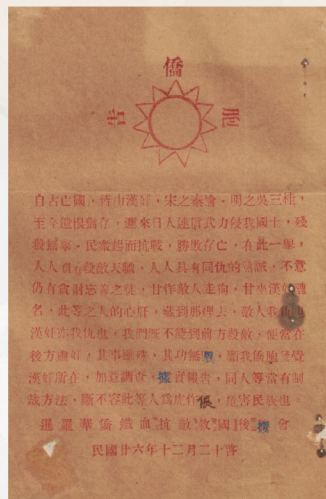 僑
告 胞
自古亡國，皆由漢奸，宋之秦檜，明之吳三桂，
至今遺恨猶存，邇來日人逞其武力侵我國土，殘
殺無辜，民衆起而抗戰，勝敗存亡，在此一舉，
人人負有殺敵天職，人人具有同仇的精誠，不意
仍有貪財忘義之徒，甘作敵人走狗，甘坐漢奸
名，此等之人的心肝，藏到那裡去，敵人我仇也
漢奸亦我仇也，我們既不能到前方殺敵，便當在
後方鋤奸，其事雖殊，其功無，願我僑胞
漢奸所在，加意調查，據實報告，同人等當有制
裁方法，斷不容此等人爲虎作倀，危害民族也。
暹羅華僑鐵血抗敵救國後援會
民國廿六年十二月二十啓